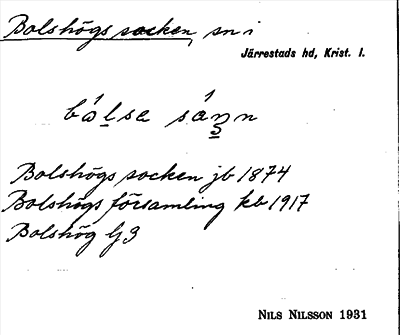 Bolshögs socken, sn i
Järrestads hd, Krist. l.
bålsa sånn
Bolshögs socken jb 1874
Bolshögs församling kb 1917
Bolshög Gg
NILS NILSSON 1931